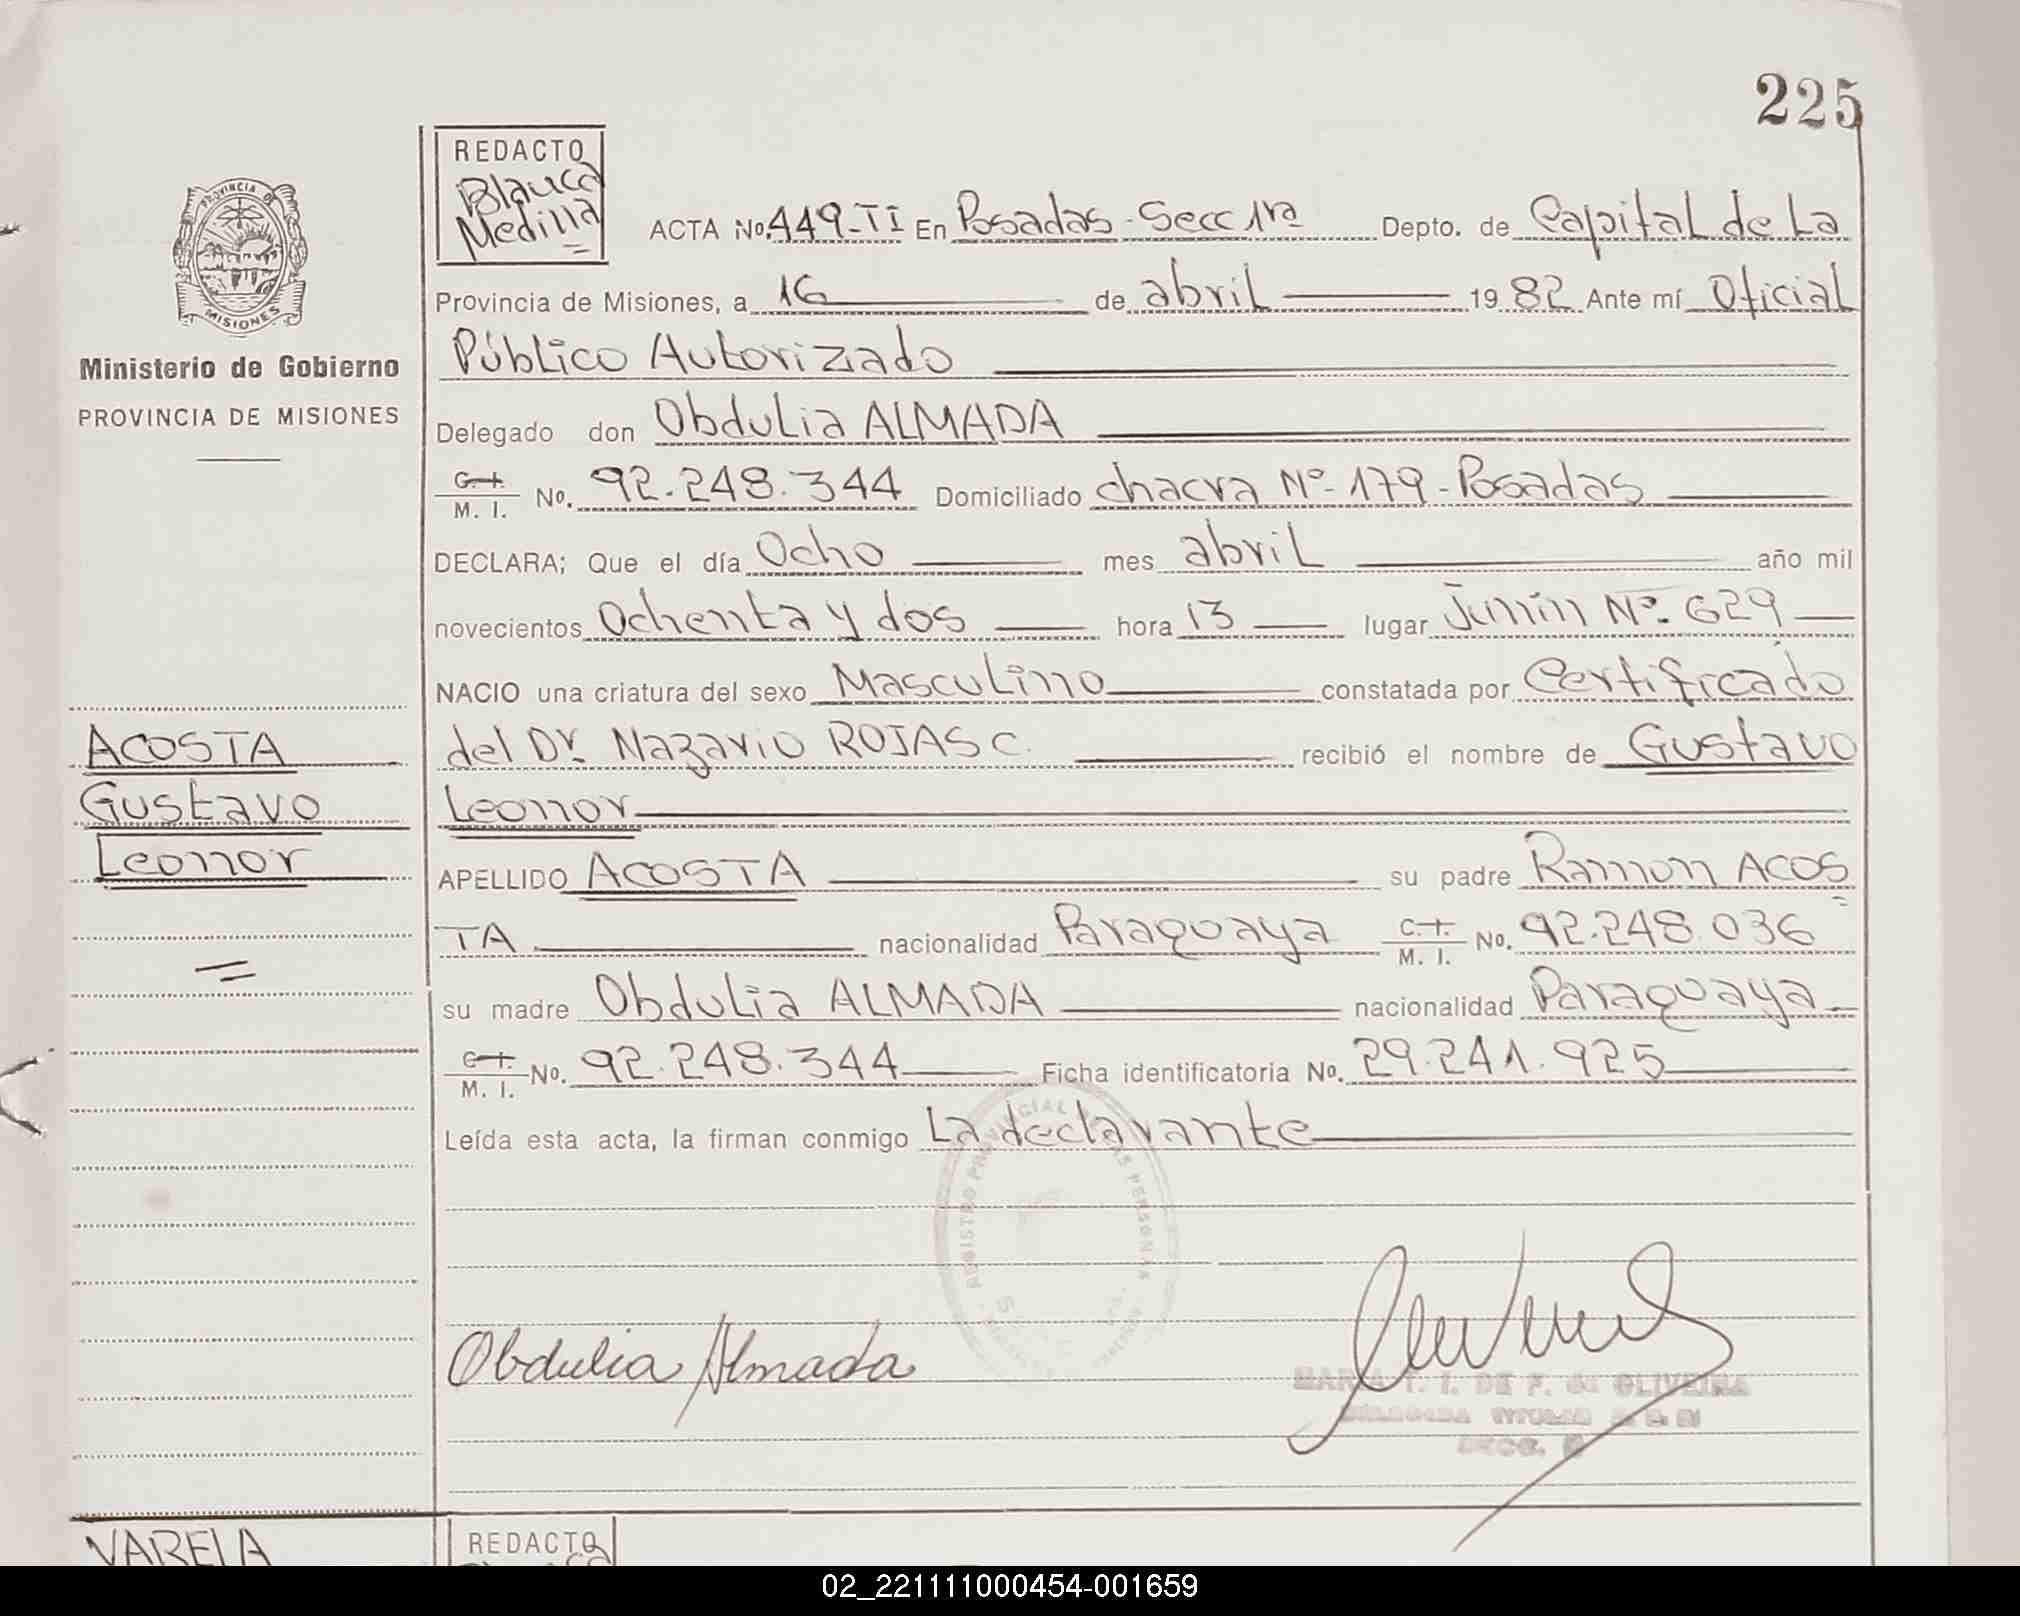 225
PROVINCIA DE
MISIONES
Ministerio de Gobierno
PROVINCIA DE MISIONES
REDACTO
Blanca
Medina
ACTA No. 449-TI En Posadas - Secc 1ra Depto. de Capital de La
Provincia de Misiones, a 16 de abril 19 82 Ante mí Oficial
Público Autorizado
Delegado don Obdulia ALMADA
C. I.
M. I. No. 92.248.344 Domiciliado chacra Nº- 179 - Posadas
DECLARA; Que el día Ocho mes abril año mil
novecientos Ochenta y dos hora 13 lugar Junín Nº- 629
NACIO una criatura del sexo Masculino constatada por Certificado
del Dr. Nazario ROJAS C. recibió el nombre de Gustavo
Leonor
APELLIDO ACOSTA su padre Ramon ACOS
TA nacionalidad Paraguaya C. I.
M. I. No. 92.248.036
su madre Obdulia ALMADA nacionalidad Paraguaya
C. I.
M. I. No. 92.248.344 Ficha identificatoria No. 29.241.925
Leída esta acta, la firman conmigo La declarante
ACOSTA
Gustavo
Leonor
REGISTRO PROVINCIAL DE LAS PERSONAS
Obdulia Almada
MARIA T. I. DE F. de OLIVEIRA
DELEGADA TITULAR
SECC.
VARELA
REDACTO
02_221111000454-001659